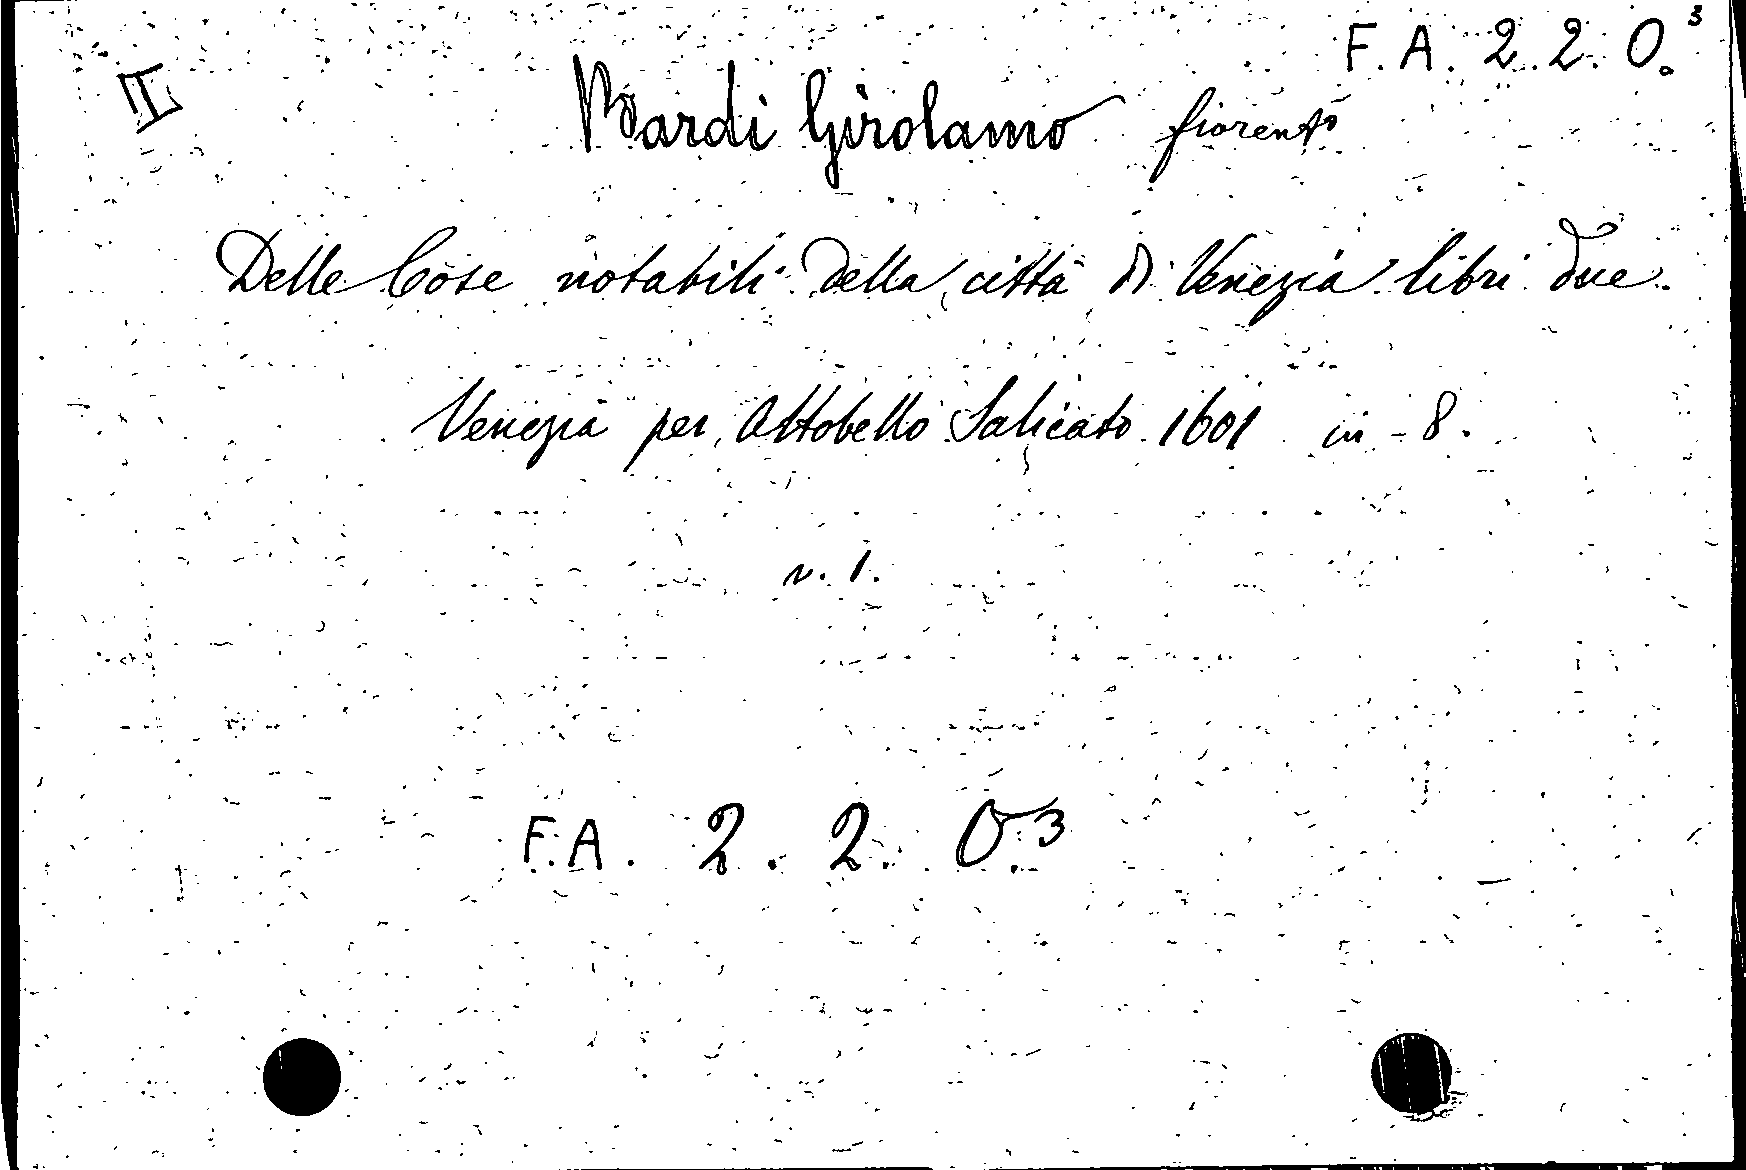 F. A. 2. 2. O.³
II
Bardi Girolamo fiorentº
Delle Cose notabili della città di Venezia libri due.
Venezia per Ottobello Salicato 1601 in - 8.
v. 1.
F. A. 2. 2. O.³